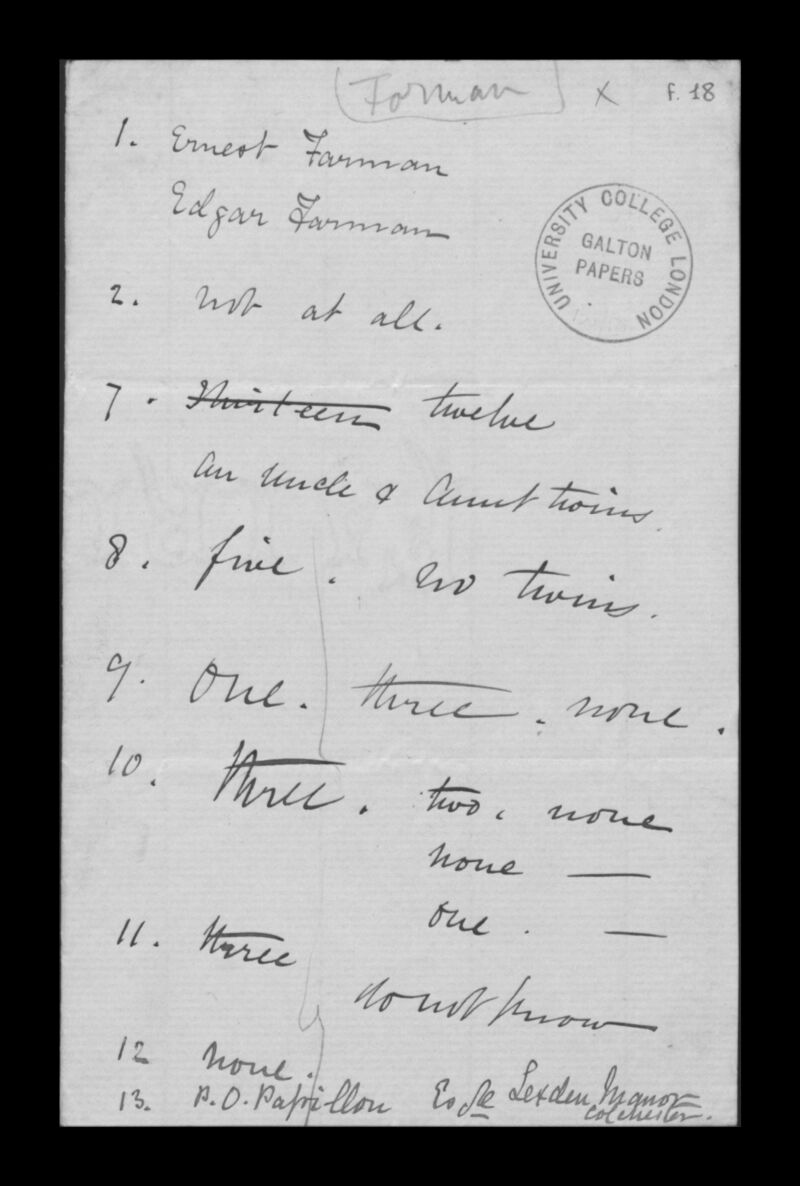 (Forman) x f. 18
1. Ernest Farman
Edgar Farman
UNIVERSITY COLLEGE LONDON
GALTON
PAPERS
2. not at all.
7. Thirteen twelve
An Uncle & Aunt twins.
8. five. No twins.
9. One. three. none.
10. Three. two. none
none —
one. —
11. three
do not know
12 none.
13. P. O. Papillon Esqre Lexden Manor
Colchester.